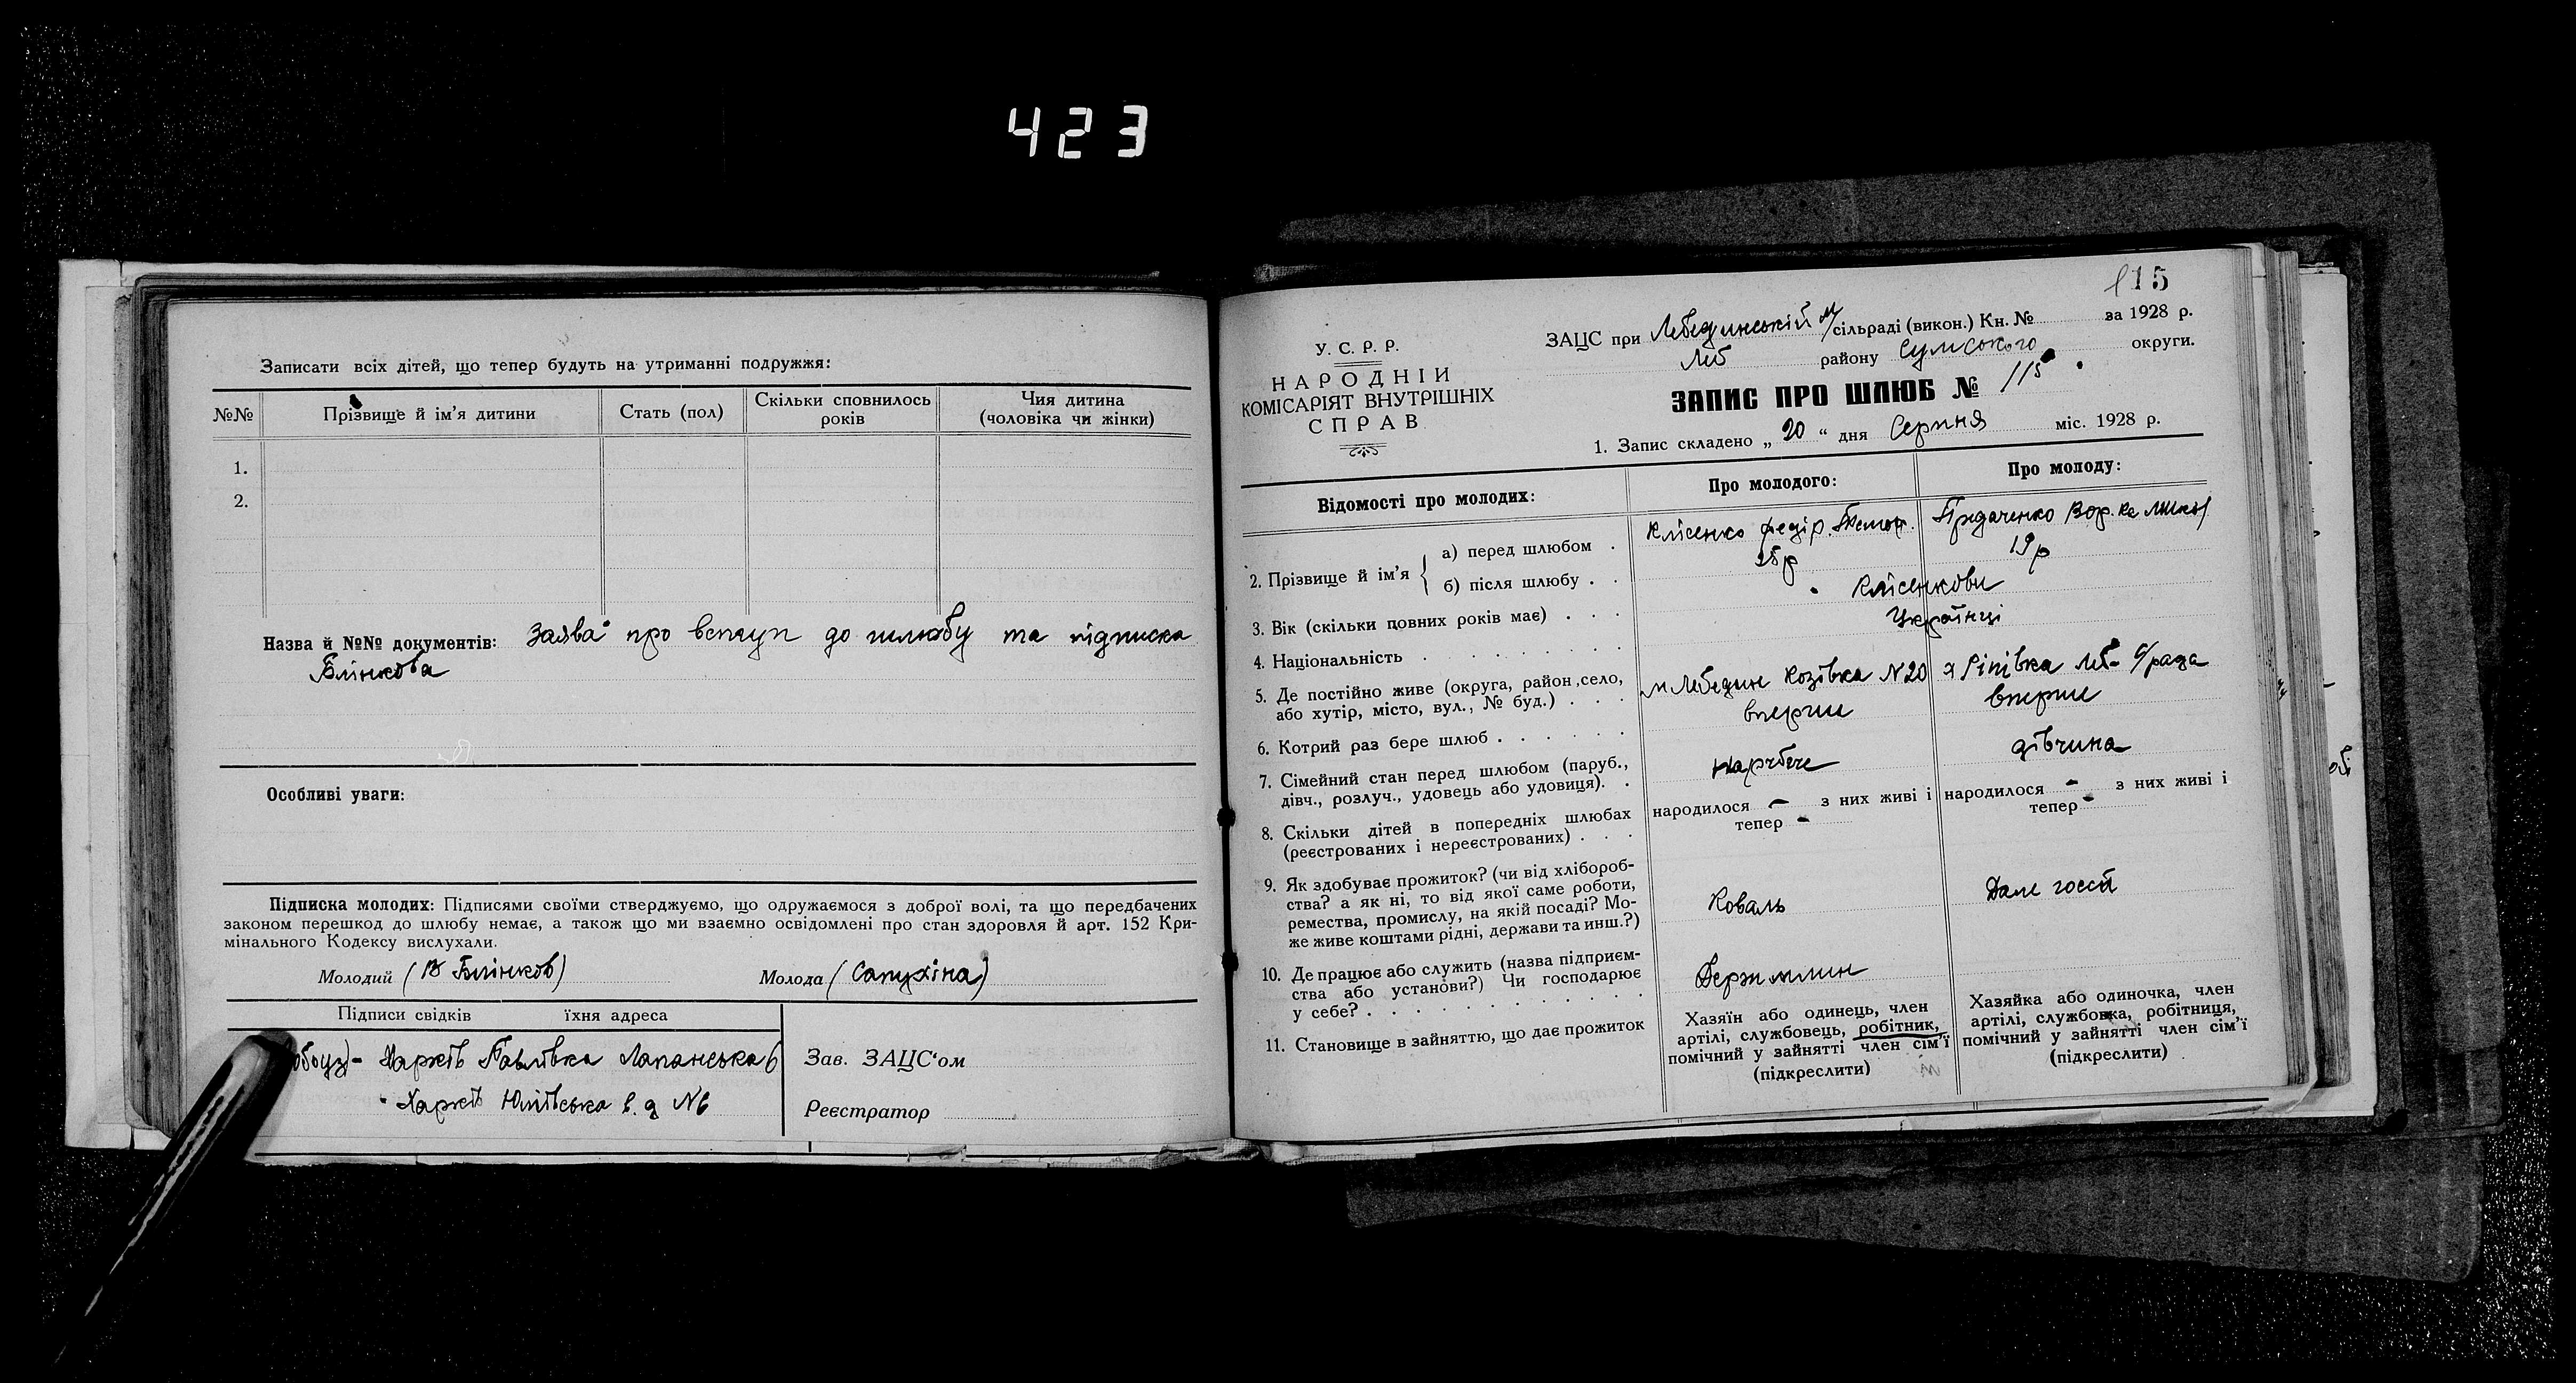 423
Записати всіх дітей, що тепер будуть на утриманні подружжя:
№№ Прізвище й ім’я дитини Стать (пол) Скільки сповнилось років Чия дитина (чоловіка чи жінки)
1.
2.
Назва й №№ документів: Заява про вступ до шлюбу та підписка
Блінкова
Особливі уваги:
Підписка молодих: Підписями своїми стверджуємо, що одружаємося з доброї волі, та що передбачених
законом перешкод до шлюбу немає, а також що ми взаємно освідомлені про стан здоровля й арт. 152 Кри-
мінального Кодексу вислухали.
Молодий (В Блінков) Молода (Сапухіна)
Підписи свідків їхня адреса
Харків Павлівка Лапанська 6
Харків Юліївська в. д №6
Зав. ЗАЦС‘ом
Реєстратор
115
У. С. Р. Р.
НАРОДНІЙ
КОМІСАРІЯТ ВНУТРІШНІХ
СПРАВ
ЗАЦС при Лебединській м/сільраді (викон.) Кн. № за 1928 р.
Леб району Сумського округи.
ЗАПИС ПРО ШЛЮБ № 115
1. Запис складено „ 20 “ дня Серпня міс. 1928 р.
Відомості про молодих: Про молодого: Про молоду:
2. Прізвище й ім’я
а) перед шлюбом . Клісенко Федір
б) після шлюбу . .
3. Вік (скільки повних років має) . . .
19 р
Клісенкови
4. Національність
Українці
5. Де постійно живе (округа, район, село,
або хутір, місто, вул., № буд.) . . .
м Лебедин Козівка №20 х Ріпівка Леб- с/рада
6. Котрий раз бере шлюб
вперше вперше
7. Сімейний стан перед шлюбом (паруб.,
дівч., розлуч., удовець або удовиця). .
дівчина
8. Скільки дітей в попередніх шлюбах
(реєстрованих і нереєстрованих) . . .
народилося - з них живі і тепер -
народилося - з них живі і тепер -
9. Як здобуває прожиток? (чи від хлібороб-
ства? а як ні, то від якої саме роботи,
ремества, промислу, на якій посаді? Мо-
же живе коштами рідні, держави та инш.?)
Коваль
10. Де працює або служить (назва підприєм-
ства або установи?) Чи господарює
у себе?
Держмлин
11. Становище в зайняттю, що дає прожиток
Хазяїн або одинець, член
артілі, службовець, робітник,
помічний у зайнятті член сім’ї
(підкреслити)
Хазяйка або одиночка, член
артілі, службовка, робітниця,
помічний у зайнятті член сім’ї
(підкреслити)